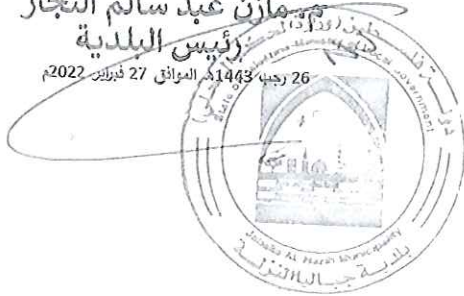 م. مازن عبد سالم النجار
رئيس البلدية
26 رجب 1443هـ الموافق 27 فبراير 2022م
دولة فلسطين
State of Palestine
Government
Jabalia AL Nazla Municipality
بلدية جباليا النزلة